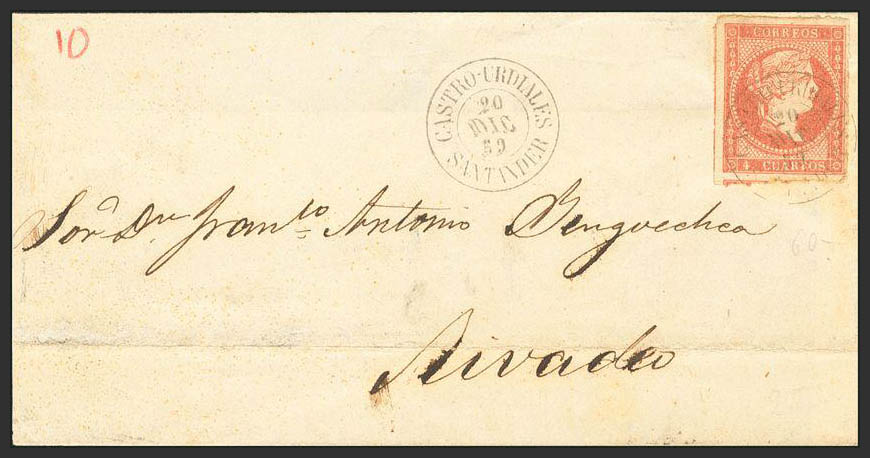 10
CORREOS
4. CUARTOS
CASTRO-URDIALES
20
DIC
59
SANTANDER
Sor. Dn. Franco. Antonio Benguechea
Rivadeo
60-